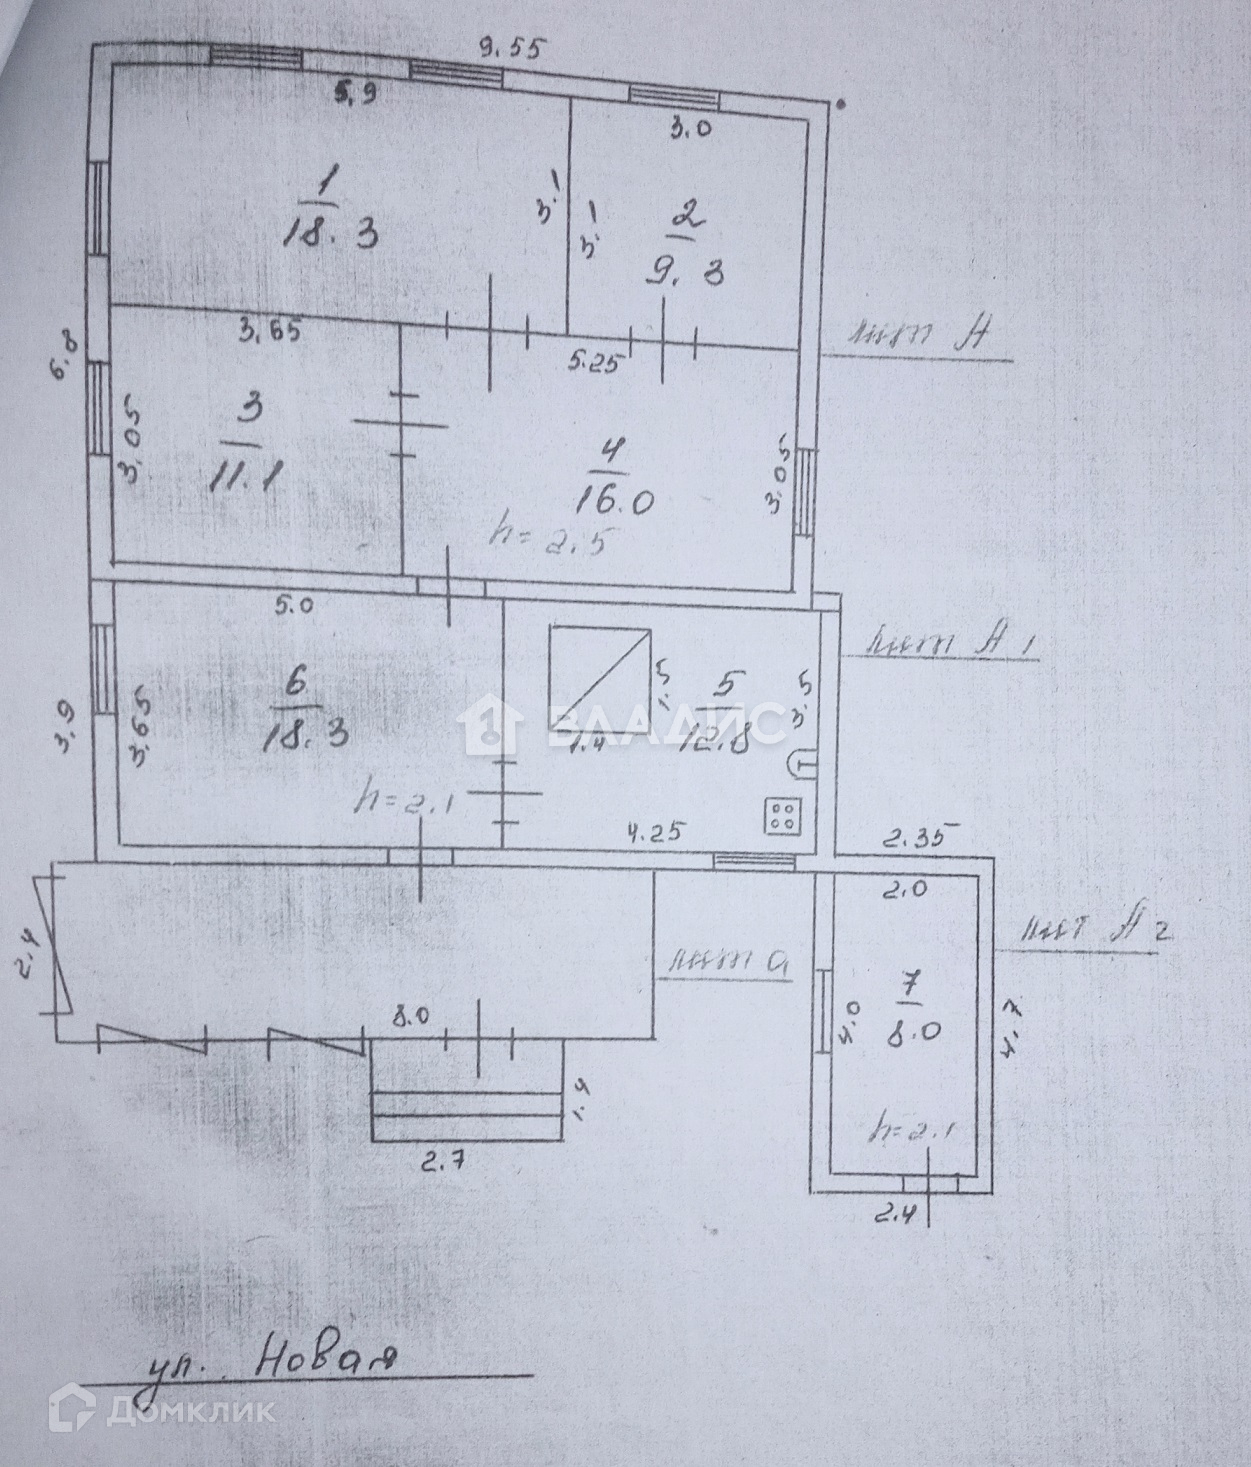 9.55
5,9
3.0
1
18.3
3.1
3.1
2
9.3
лит А
3,65
5.25
6.8
3.05
3
11.1
4
16.0
3.05
h=2.5
5.0
лит А1
6
18.3
3.9
3.65
h=2.1
1.5
1.4
5
12.8
3.5
ВЛАДИС
4.25
2.35
2.0
2.4
лит а
лит А2
8.0
7
8.0
4.0
4.7
h=2.1
1.4
2.7
2.4
ул. Новая
Домклик